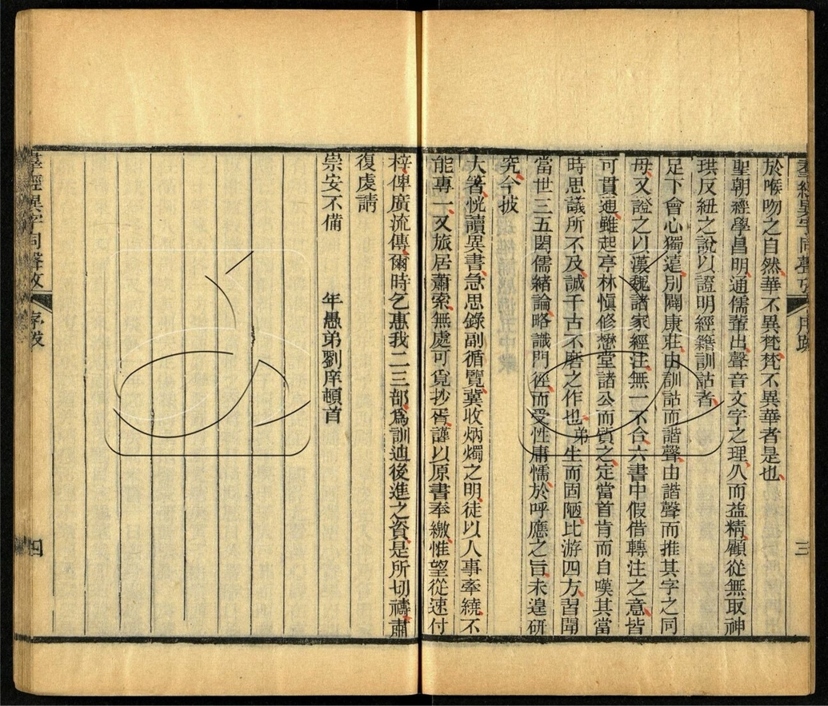 羣經異字同聲攷 序跋 三
於喉吻之自然華不異梵梵不異華者是也
聖朝經學昌明通儒輩出聲音文字之理久而益精顧從無取神
珙反紐之說以證明經籍訓詁者
足下會心獨遠別闢康莊由訓詁而諧聲由諧聲而推其字之同
母又證之以漢魏諸家經注無一不合六書中假借轉注之意皆
可貫通雖起亭林愼修懋堂諸公而質之定當首肯而自嘆其當
時思議所不及誠千古不磨之作也弟生而固陋比游四方習聞
當世三五閎儒緒論略識門徑而受性庸懦於呼應之旨未遑研
究今披
大箸恍讀異書急思錄副循覽冀收炳燭之明徒以人事牽繞不
能專一又旅居蕭索無處可覓抄胥謹以原書奉繳惟望從速付
梓俾廣流傳爾時乞惠我二三部爲訓迪後進之資是所切禱肅
復虔請
崇安不備
年愚弟劉庠頓首
羣經異字同聲攷 序跋 四